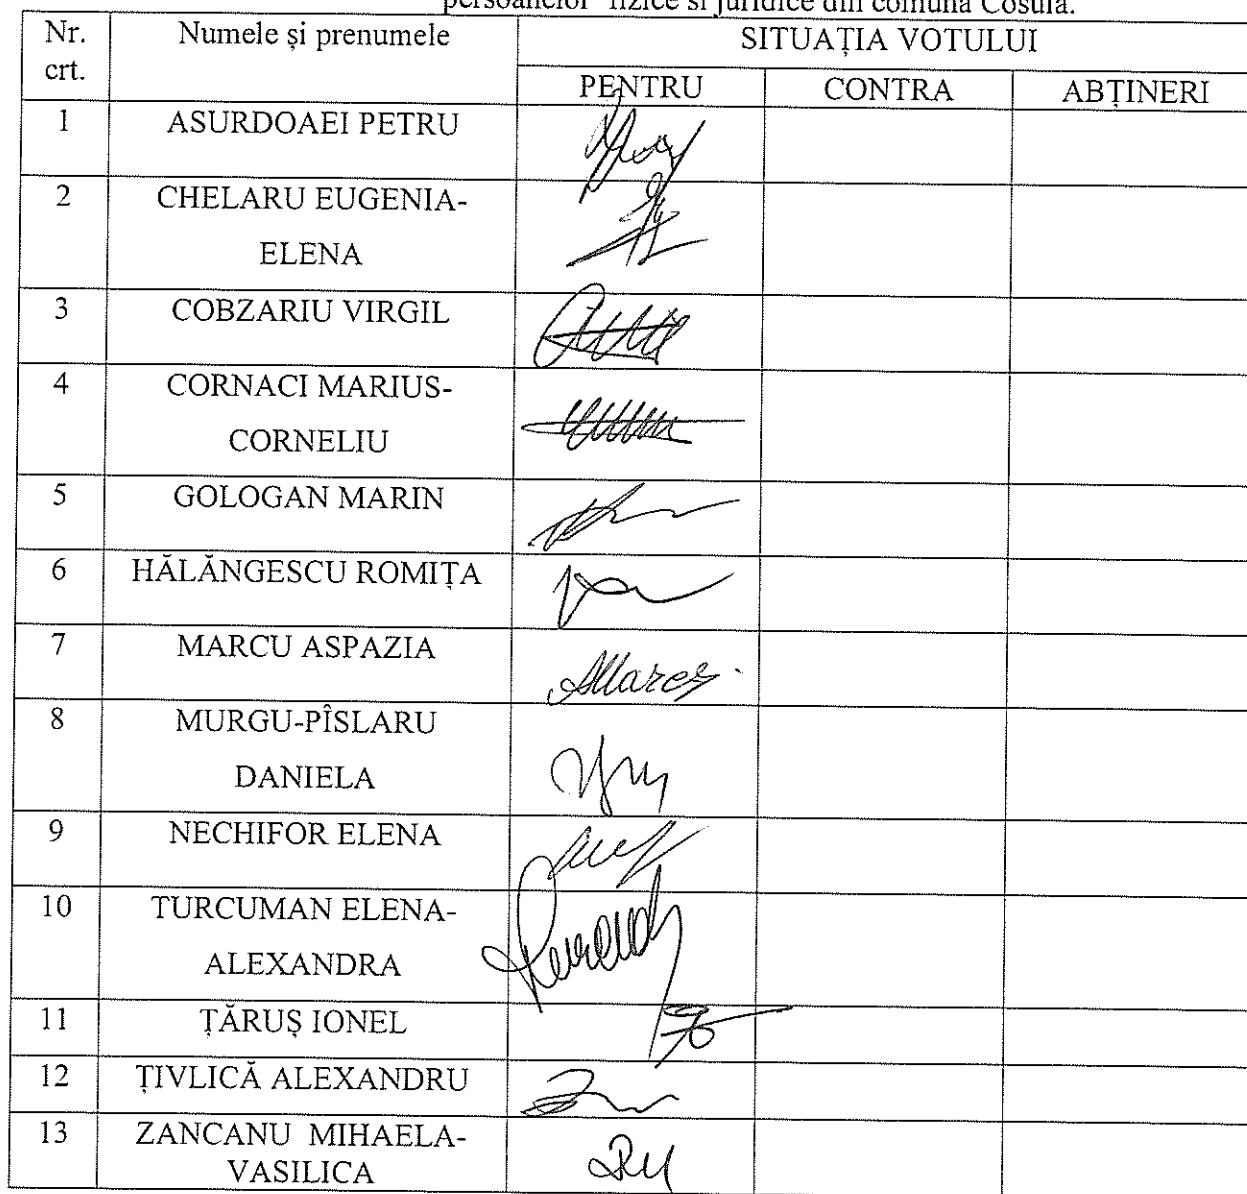 persoanelor fizice si juridice din comuna Cosula.
Nr. crt. Numele și prenumele SITUAȚIA VOTULUI
PENTRU CONTRA ABȚINERI
1 ASURDOAEI PETRU
2 CHELARU EUGENIA-
ELENA
3 COBZARIU VIRGIL
4 CORNACI MARIUS-
CORNELIU
5 GOLOGAN MARIN
6 HĂLĂNGESCU ROMIȚA
7 MARCU ASPAZIA
8 MURGU-PÎSLARU
DANIELA
9 NECHIFOR ELENA
10 TURCUMAN ELENA-
ALEXANDRA
11 ȚĂRUȘ IONEL
12 ȚIVLICĂ ALEXANDRU
13 ZANCANU MIHAELA-
VASILICA